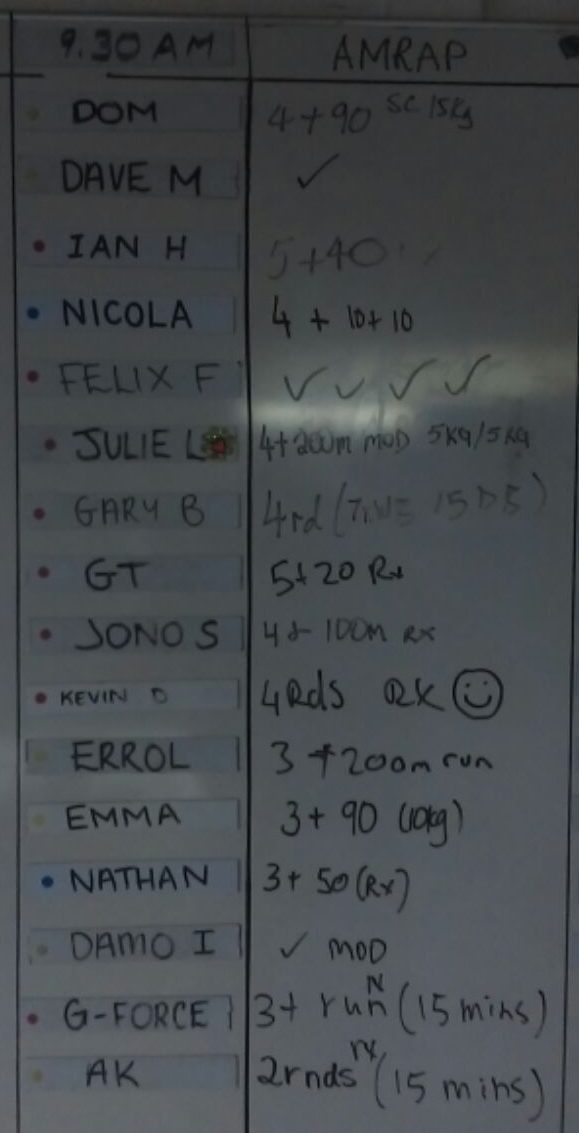 9.30 AM AMRAP
DOM 4+90 SC 15kg
DAVE M ✓
IAN H 5+40
NICOLA 4 + 10+10
FELIX F ✓ ✓ ✓ ✓
JULIE L 4+200m MOD 5KG/5KG
GARY B 4rd
GT 5+20 Rx
JONO S 4+ 100m RX
KEVIN D 4Rds RX ☺
ERROL 3 +200m run
EMMA 3+ 90 (10kg)
NATHAN 3+ 50 (Rx)
DAMO I ✓ MOD
G-FORCE 3+ run (15 mins)
AK 2rnds rx (15 mins)